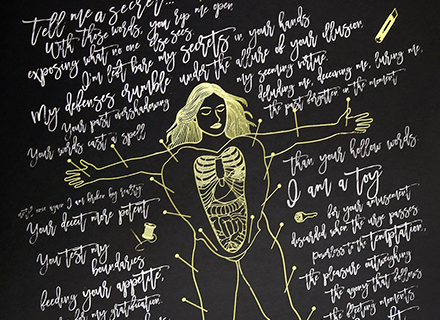 tell me a secret...
With these words, you rip me open,
exposing what no one else sees.
I'm left bare my secrets in your hands
My defenses crumble under the allure of your illusion.
Your past overshadowing
my seeming virtue.
deluding me, deceiving me, luring me,
the past forgotten in the moment
Your words cast a spell
than your hollow words.
I am a toy
for your amusement
discarded when the urge passes
Powerless to the temptation,
the pleasure outweighing
the agony that follows
the fleeting moments
once again I am broken by
Your deceit more potent
You test my
boundaries
feeding your appetite,
for my gratification.